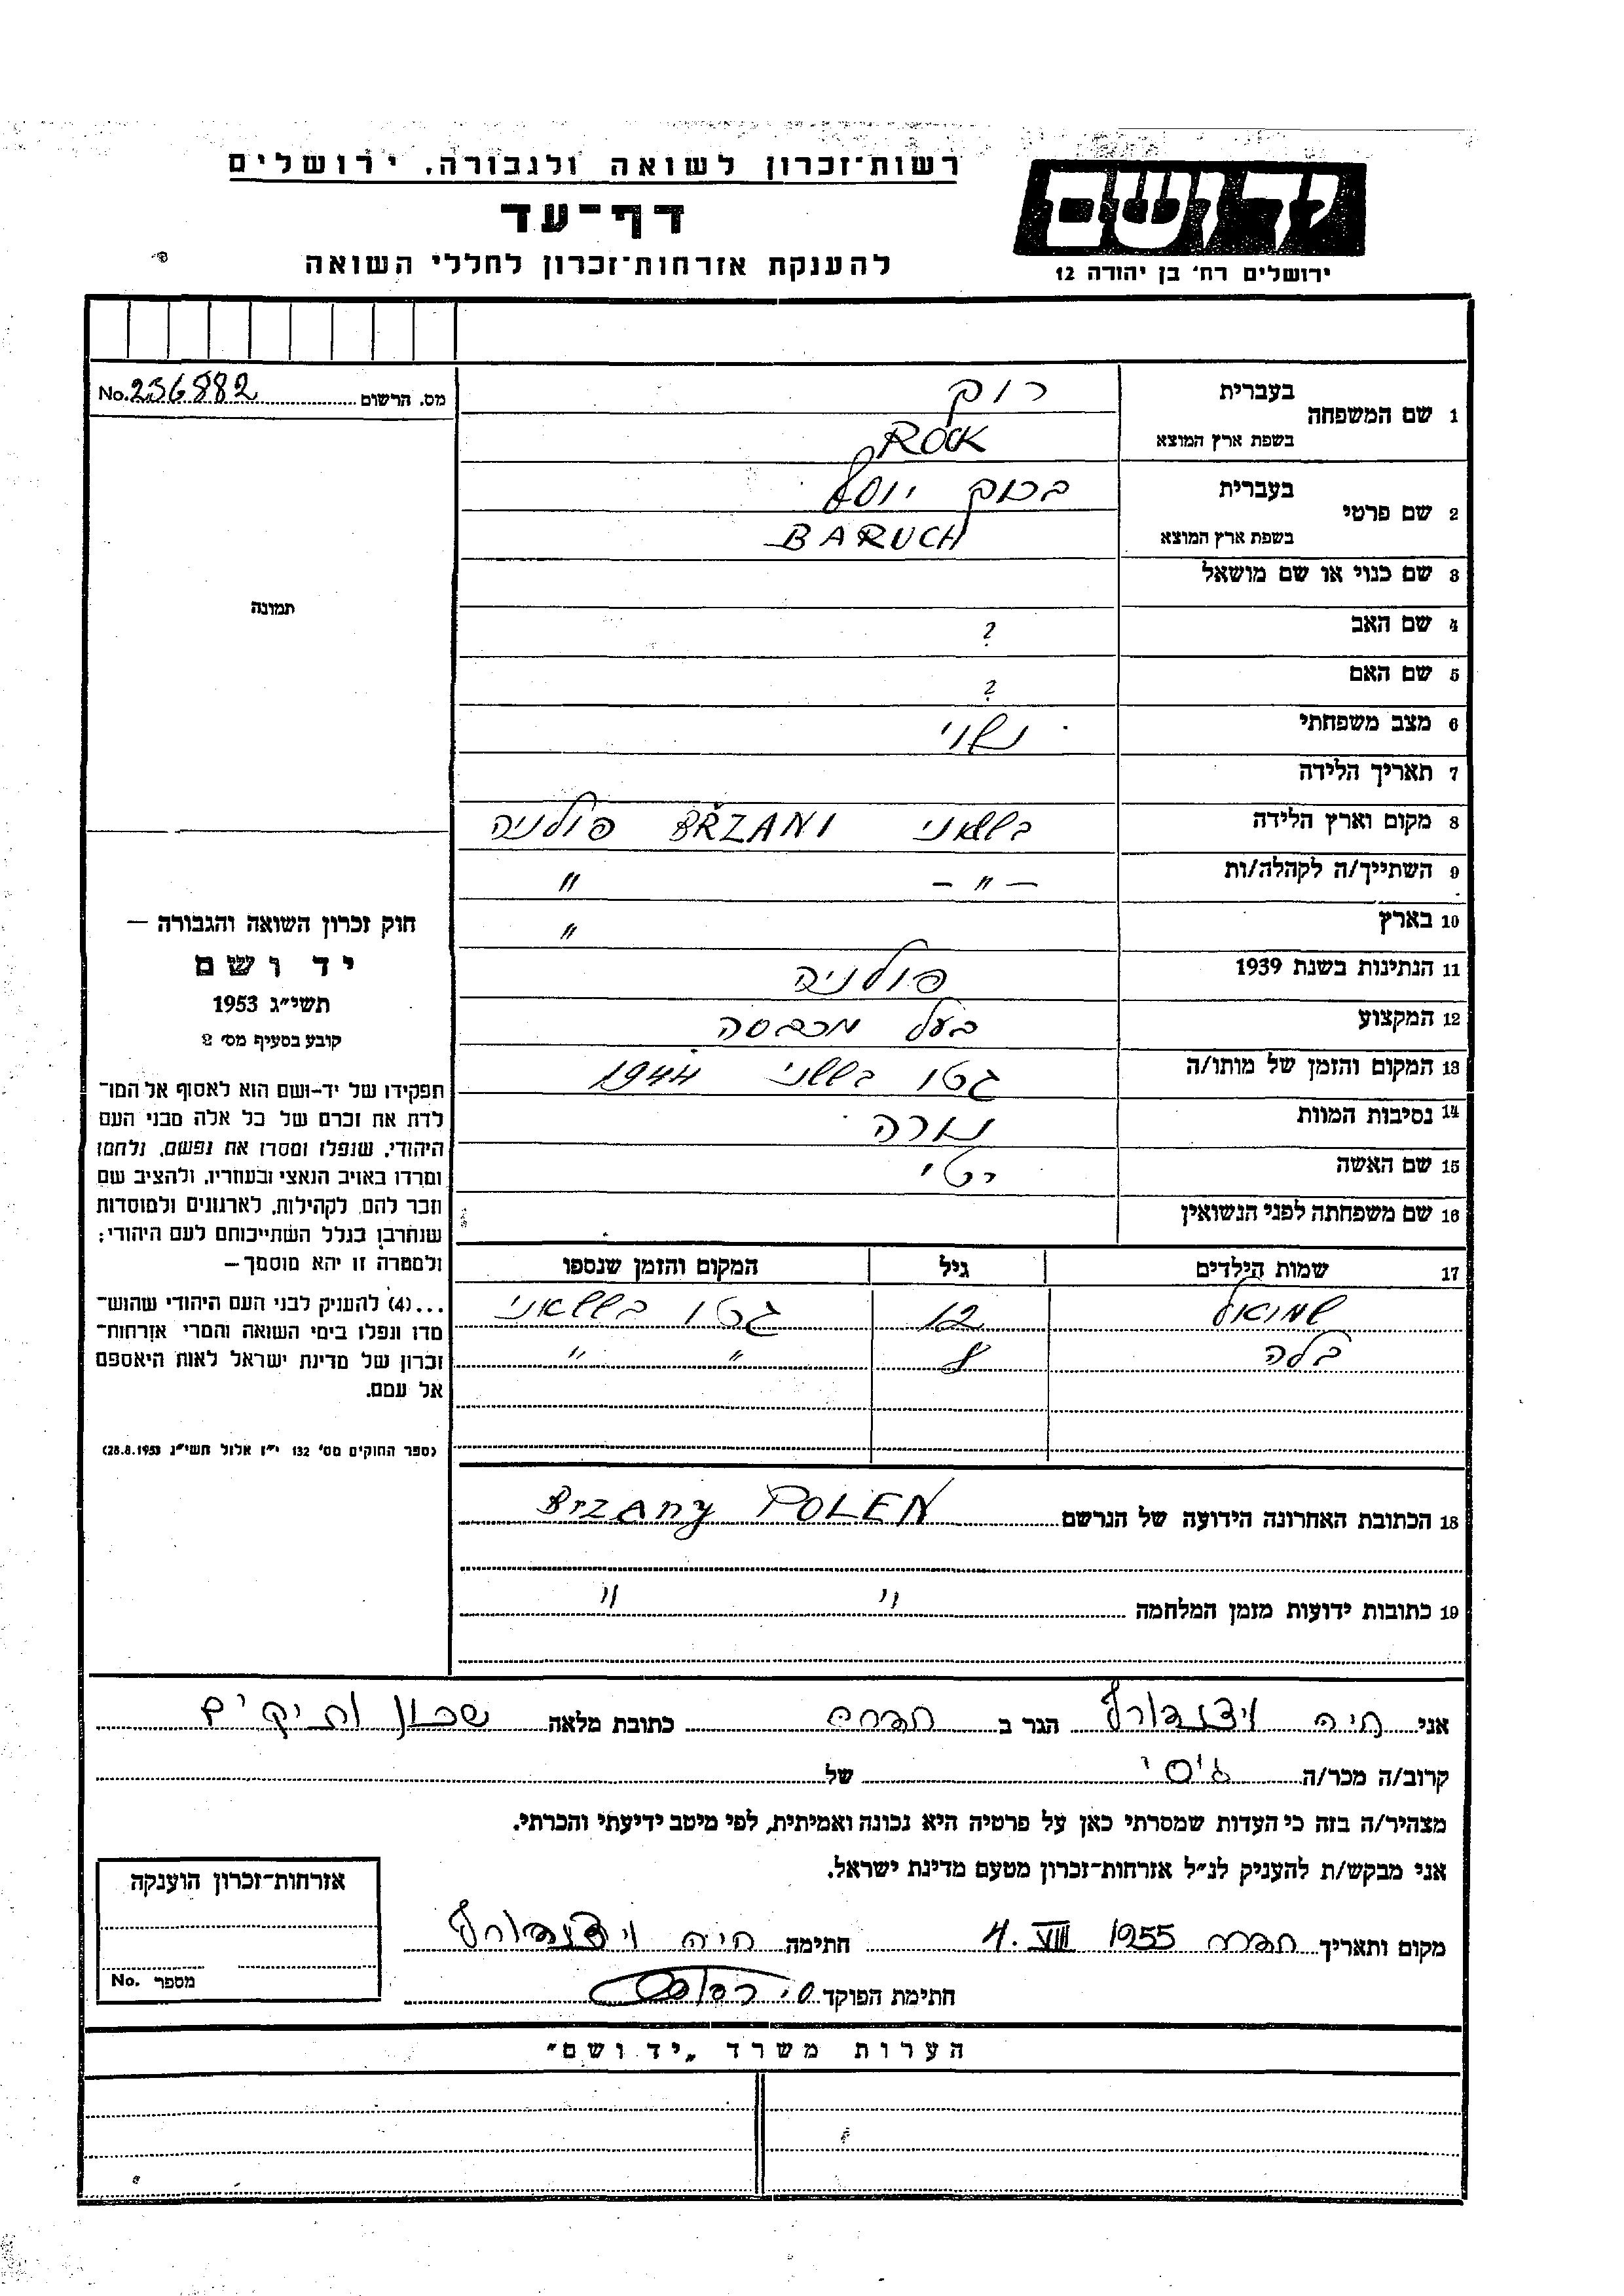 רשות־זכרון לשואה ולגבורה, ירושלים
דף־עד
להענקת אזרחות־זכרון לחללי השואה
יד ושם
ירושלים רח' בן יהודה 12
מס. הרשום No. 236882
1 שם המשפחה
בעברית רוק
בשפת ארץ המוצא ROK
2 שם פרטי
בעברית ברוך יוסף
בשפת ארץ המוצא BARUCH
3 שם כנוי או שם מושאל
4 שם האב ?
5 שם האם ?
6 מצב משפחתי נשוי
7 תאריך הלידה
8 מקום וארץ הלידה BRZANI פולניה
9 השתייך/ה לקהלה/ות – " – "
10 בארץ "
11 הנתינות בשנת 1939 פולניה
12 המקצוע בעל מכבסה
13 המקום והזמן של מותו/ה גטו 1944
14 נסיבות המוות נורה
15 שם האשה
16 שם משפחתה לפני הנשואין
17 שמות הילדים גיל המקום והזמן שנספו
שמואל 12 גטו
בלה 8 " "
18 הכתובת האחרונה הידועה של הנרשם Brzany POLEN
19 כתובות ידועות מזמן המלחמה " "
תמונה
חוק זכרון השואה והגבורה —
יד ושם
תשי״ג 1953
קובע בסעיף מס' 2
תפקידו של יד-ושם הוא לאסוף אל המו־
לדת את זכרם של כל אלה מבני העם
היהודי, שנפלו ומסרו את נפשם, נלחמו
ומרדו באויב הנאצי ובעוזריו, ולהציב שם
וזכר להם, לקהילות, לארגונים ולמוסדות
שנחרבו בגלל השתייכותם לעם היהודי;
ולמטרה זו יהא מוסמך —
...(4) להעניק לבני העם היהודי שהוש־
מדו ונפלו בימי השואה והמרי אזרחות־
זכרון של מדינת ישראל לאות היאספם
אל עמם.
(ספר החוקים מס' 132 י״ז אלול תשי״ג 28.8.1953)
אני חיה הגר ב חדרה כתובת מלאה שכון ותיקים
קרוב/ה מכר/ה גיסי של
מצהיר/ה בזה כי העדות שמסרתי כאן על פרטיה היא נכונה ואמיתית, לפי מיטב ידיעתי והכרתי.
אני מבקש/ת להעניק לנ״ל אזרחות־זכרון מטעם מדינת ישראל.
מקום ותאריך חדרה 4. VIII 1955 חתימה חיה
חתימת הפוקד
אזרחות־זכרון הוענקה
מספר No.
הערות משרד „יד ושם"